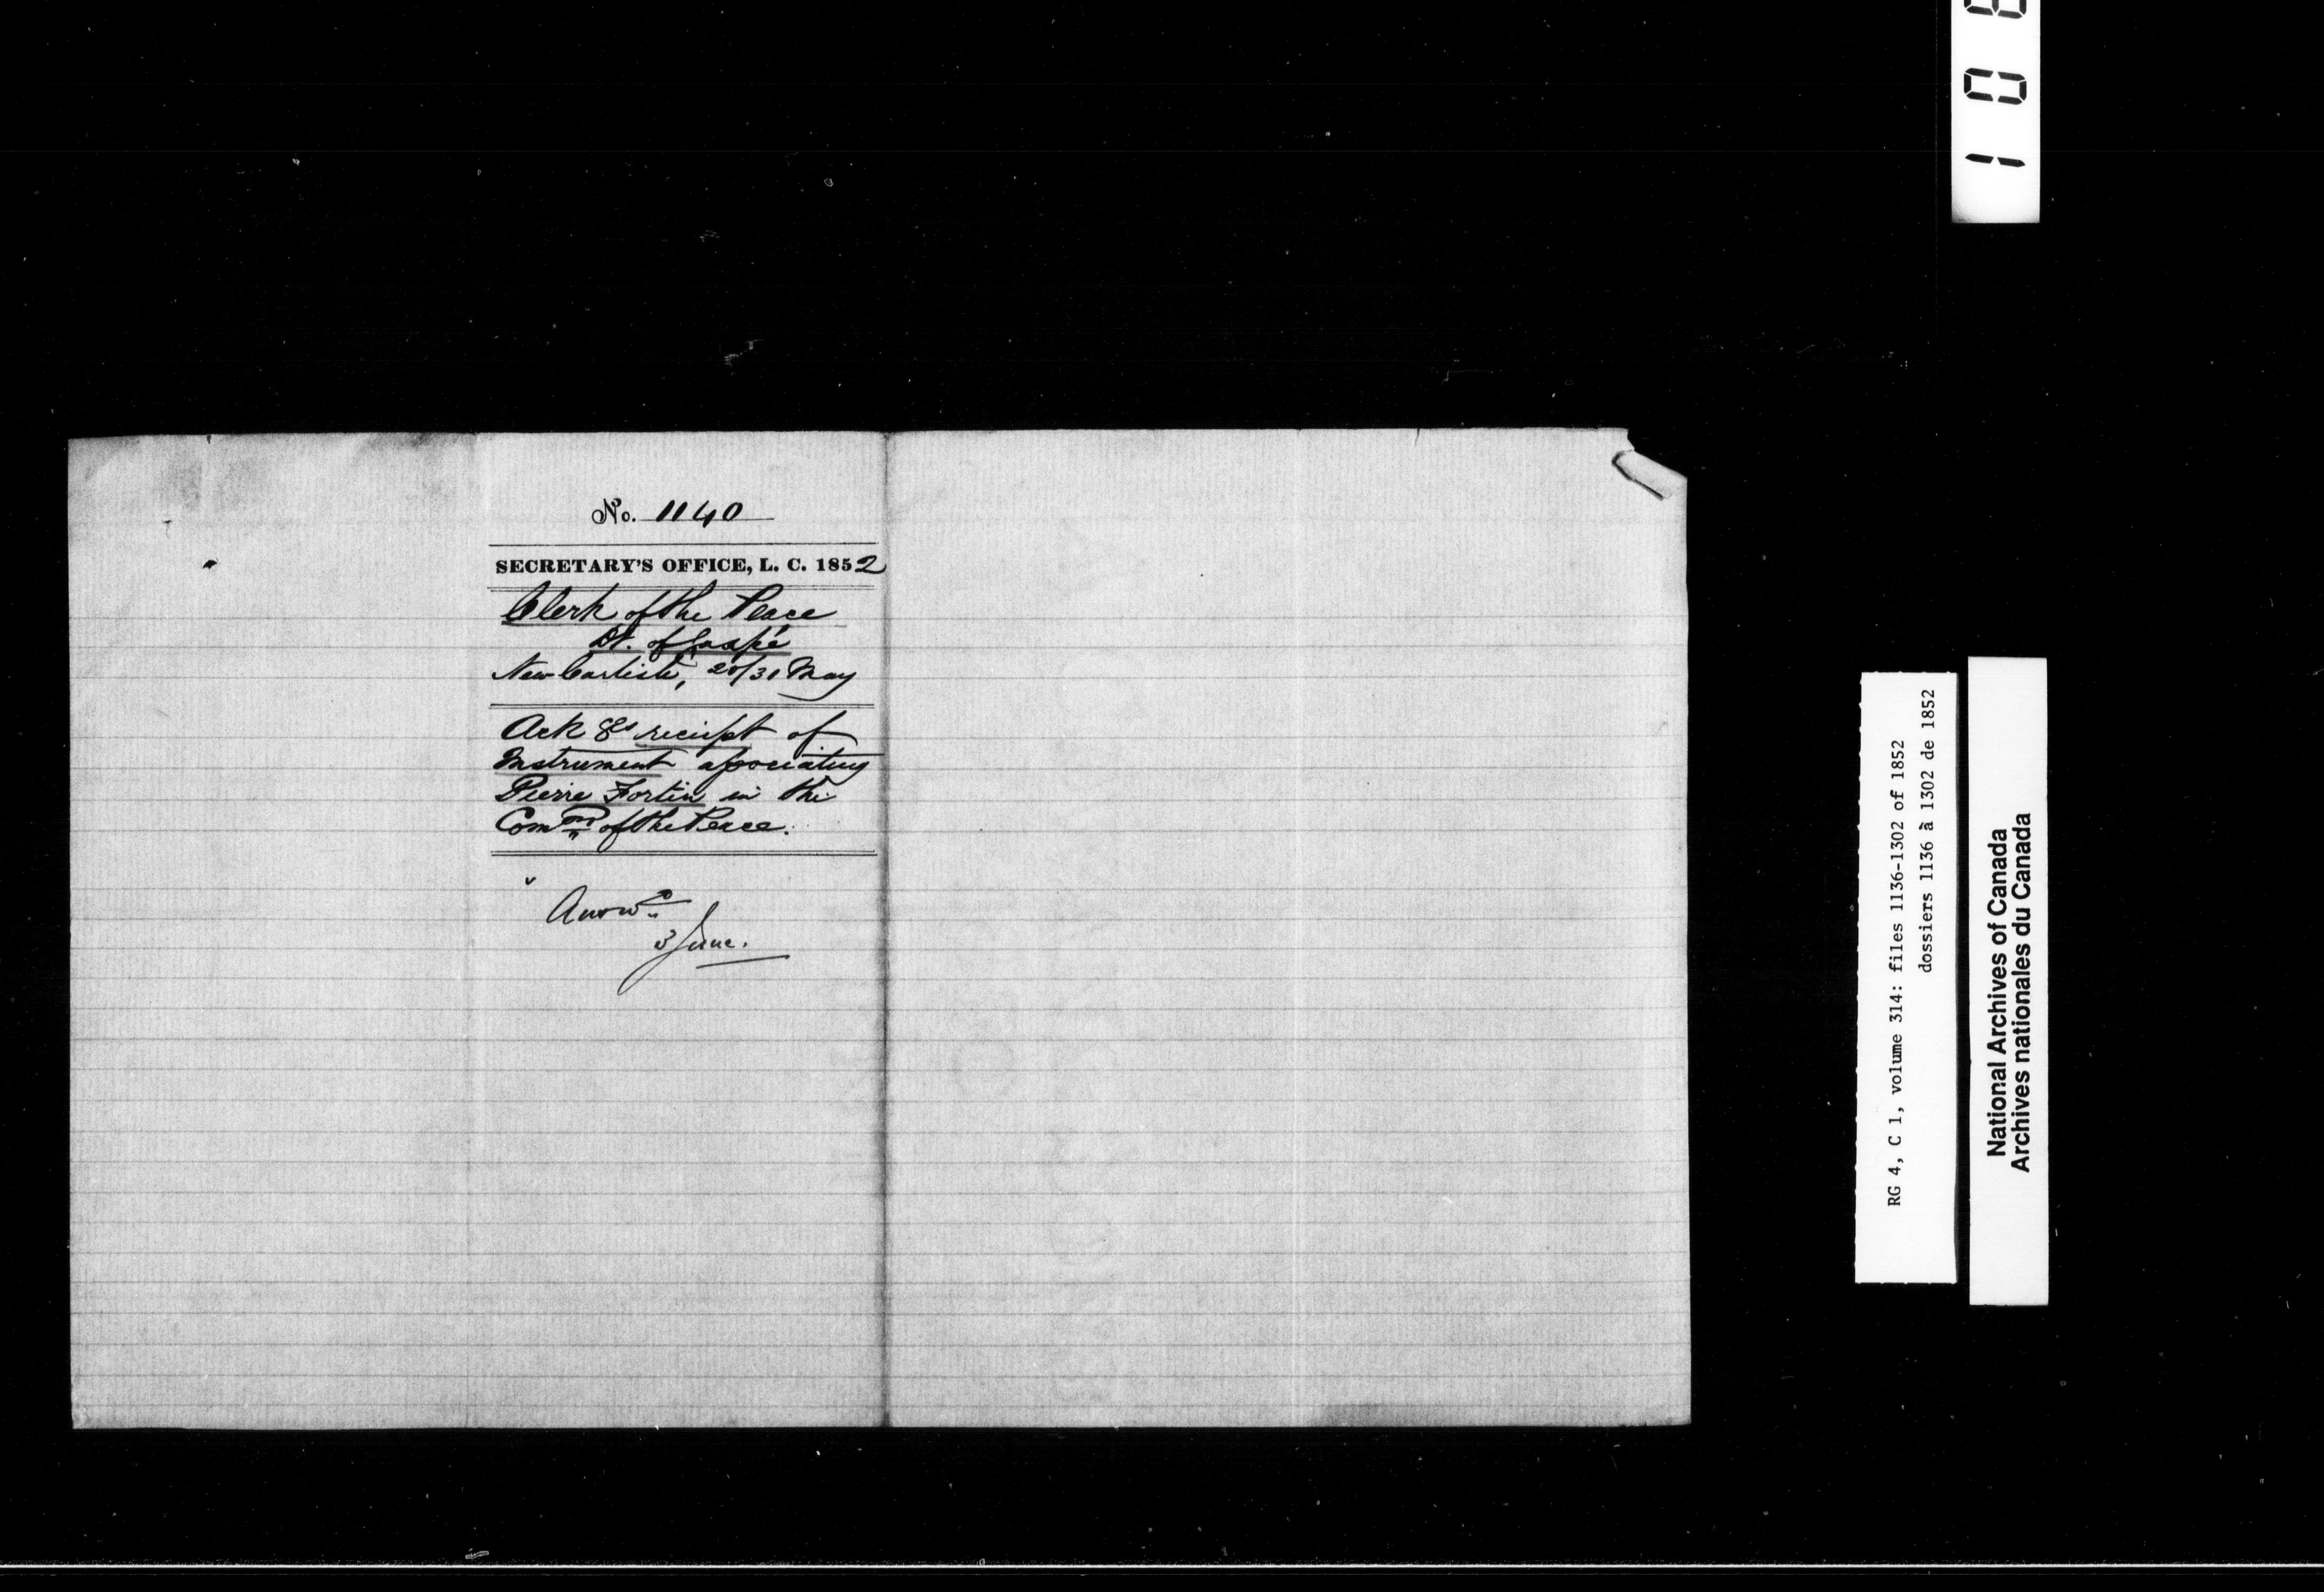 No. 1140
SECRETARY'S OFFICE, L. C. 1852
Clerk of the Peace
Dt. of Gaspé
New Carlisle, 20/31 May
Ack gs receipt of
Instrument associating
Pierre Fortin in the
Comon of the Peace.
Answd
3 June.
RG 4, C 1, volume 314: files 1136-1302 of 1852
dossiers 1136 à 1302 de 1852
National Archives of Canada
Archives nationales du Canada
1 0